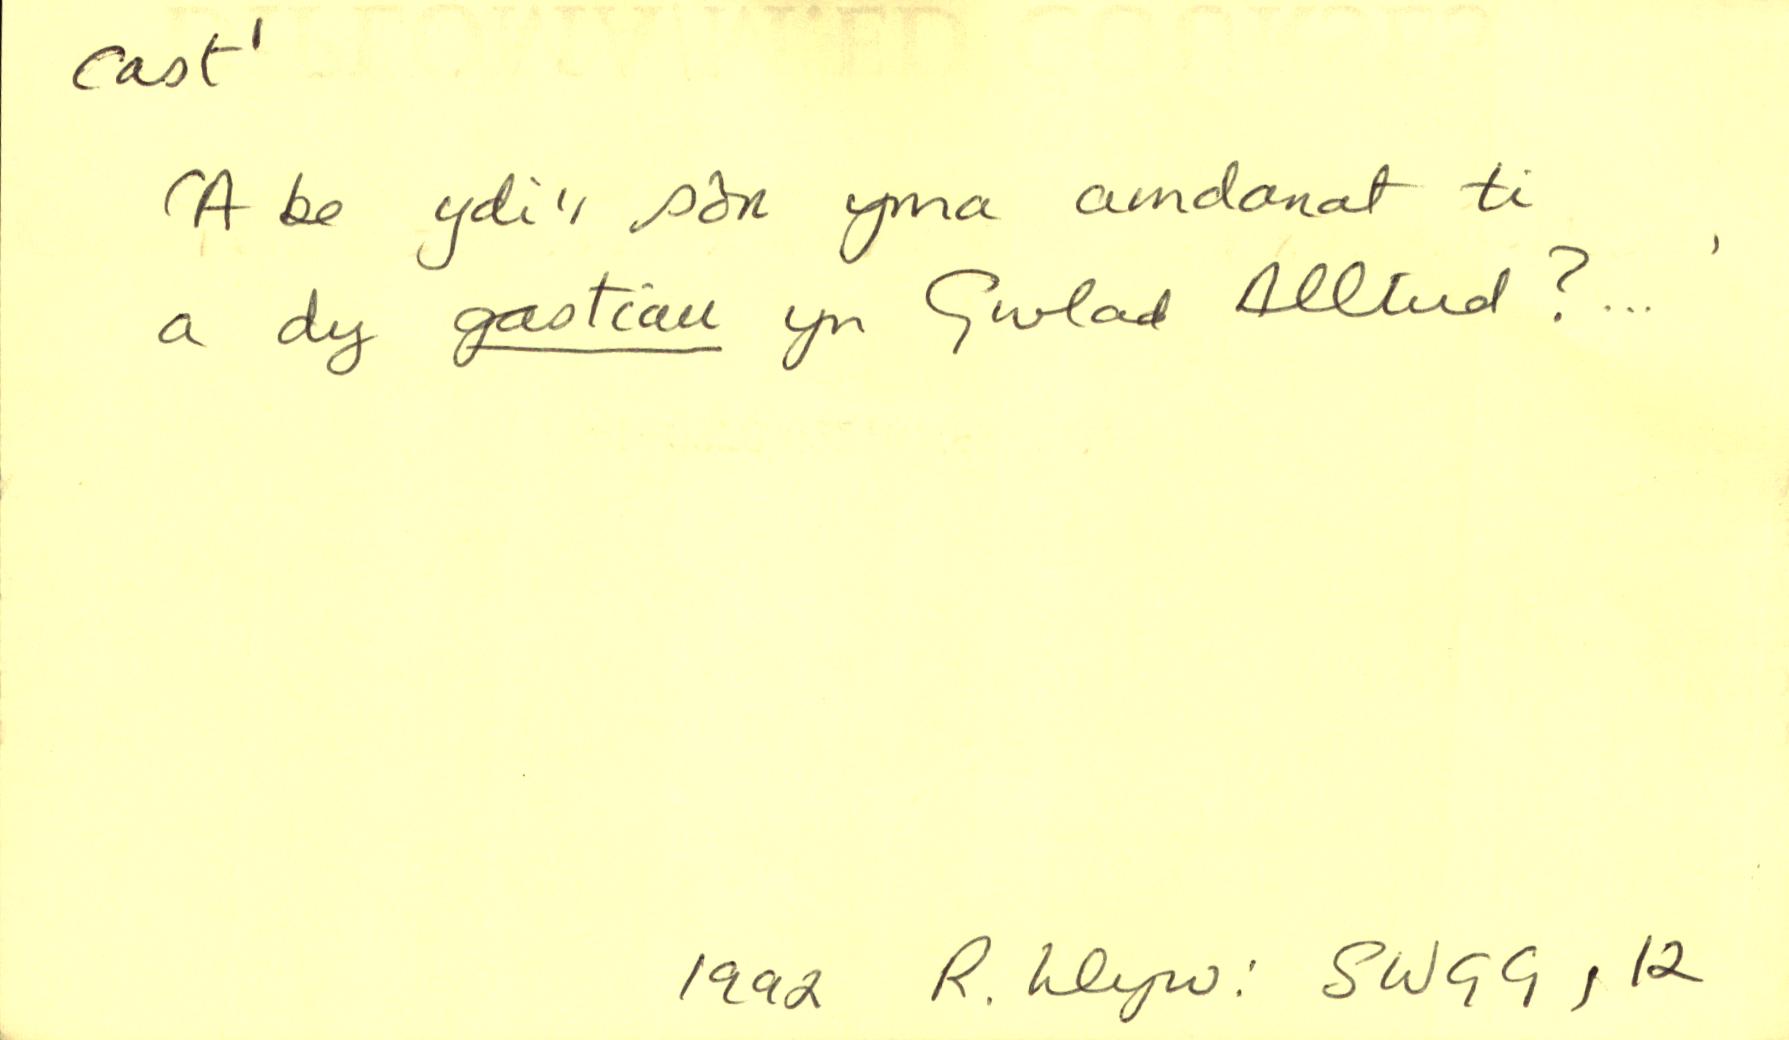 cast¹
'A be ydi'r sôn yma amdanat ti
a dy gastiau yn Gwlad Alltud?...'
1992 R. Llwyn: SWGG, 12